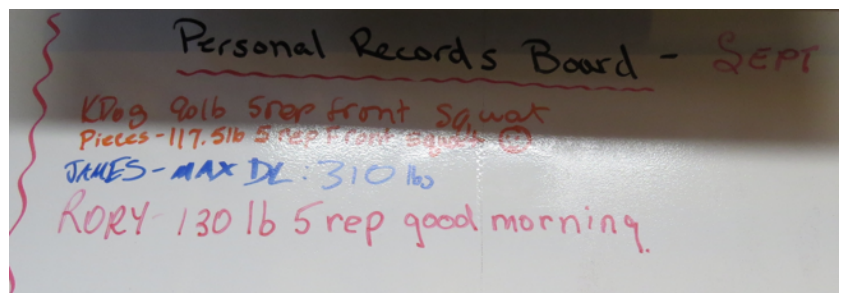 Personal Records Board - SEPT
KDog 90lb 5rep front squat
Pieces - 117.5lb 5 rep Front squat
JAMES - MAX DL: 310 lbs
RORY - 130 lb 5 rep good morning.